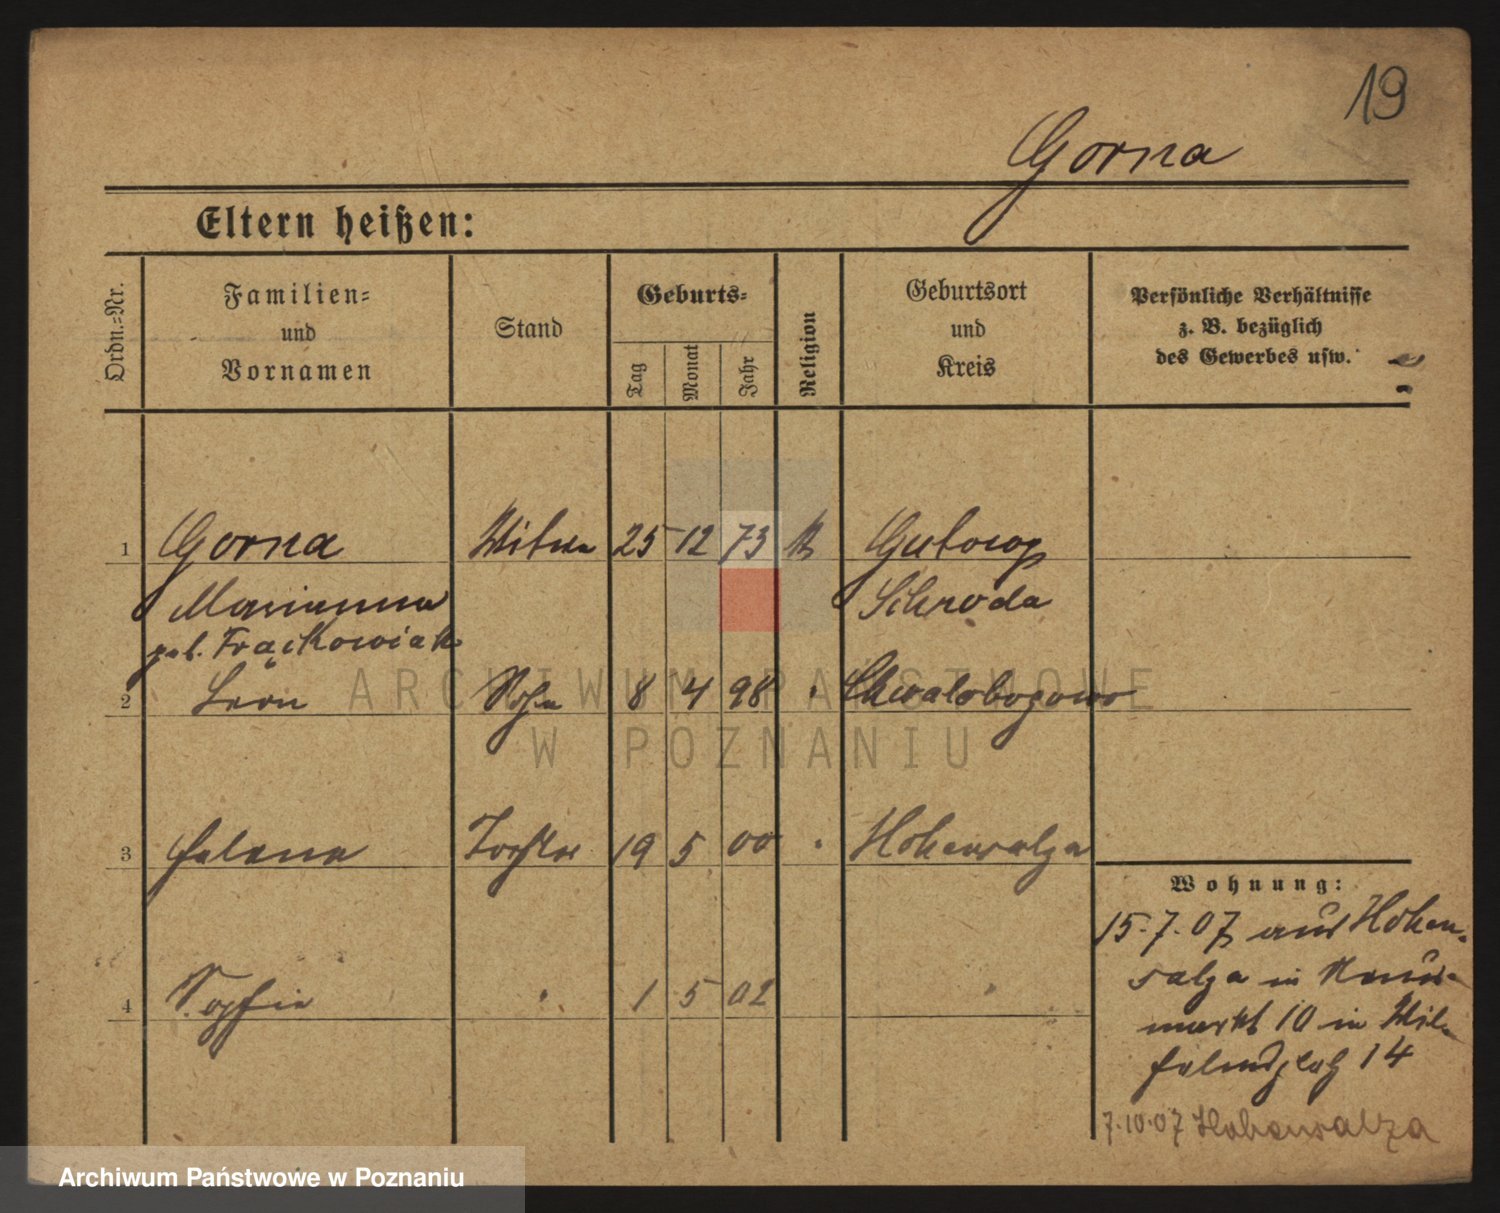 19
Gorna
Eltern heißen:
Ordn.-Nr.
Familien-
und
Vornamen
Stand
Geburts-
Tag
Monat
Jahr
Religion
Geburtsort
und
Kreis
Persönliche Verhältnisse
z. B. bezüglich
des Gewerbes usw.
1 Gorna Witwe 25 12 73 K Gutowy
Marianna Schroda
geb. Frąckowiak
2 Leon Sohn 8 4 98 " Chwalobogowo
ARCHIWUM PAŃSTWOWE
W POZNANIU
3 Helena Tochter 19 5 00 " Hohensalza
Wohnung:
15.7.07 aus Hohen-
salza in
4 Sophie " 1 5 02 "
markt 10 in Wil-
14
7.10.07 Hohensalza
Archiwum Państwowe w Poznaniu